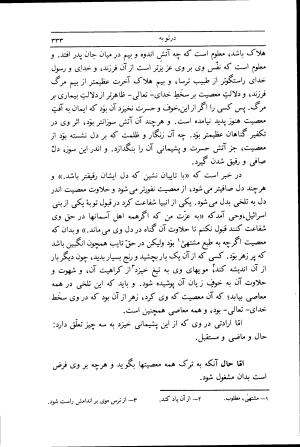 در توبه
۳۳۳
هلاک باشد، معلوم است که چه آتش اندوه و بیم در میان جان پدر افتد. و
معلوم است که نفس وی بر وی عزیزتر است از فرزند، و خدای و رسول
خدای راستگوتر از طبیب ترسا، و بیم هلاک آخرت عظیمتر از بیم مرگ
فرزند، و دلالت معصیت بر سخط خدای-تعالی- ظاهرتر از دلالت بیماری بر
مرگ. پس کسی را اگر از این خوف و حسرت نخیزد آن بود که ایمان به آفت
معصیت هنوز پدید نیامده است. و هرچند آن آتش سوزانتر بود، اثر وی در
تکفیر گناهان عظیمتر بود. چه آن زنگار و ظلمت که بر دل نشسته بود از
معصیت، جز آتش حسرت و پشیمانی آن را بنگدازد. و اندر این سوز، دل
صافی و رقیق شدن گیرد.
در خبر است که «با تایبان نشین که دل ایشان رقیقتر باشد.» و
هرچند دل صافیتر می‌شود، از معصیت نفورتر می‌شود و حلاوت معصیت اندر
دل به تلخی بدل می‌شود. یکی از انبیا شفاعت کرد در قبول توبهٔ یکی از بنی
اسرائیل، وحی آمد که «به عزت من که اگر همه اهل آسمانها در حق وی
شفاعت کنند قبول نکنم تا حلاوت آن گناه در دل وی می‌ماند.» و بدان که
معصیت اگرچه به طبع مشتهی۱ بود ولیکن در حق تایب همچون انگبین باشد
که پر زهر بود. کسی که از آن یک بار بچشید و رنج بسیار بدید، چون دیگر بار
از آن اندیشه کند۲ مویهای وی به تیغ خیزد۳ از کراهیت آن، و شهوت و
حلاوت به خوف زیان آن پوشیده شود. و باید که این تلخی در همه
معاصی بیابد؛ که آن معصیت که وی کرد، زهر از آن بود که در وی سخط
خدای- تعالی- بود، و همه معاصی همچنین است.
امّا ارادتی در وی که از این پشیمانی خیزد به سه چیز تعلّق دارد:
حال و ماضی و مستقبل.
امّا حال آنکه به ترک همه معصیتها بگوید و هرچه بر وی فرض
است بدان مشغول شود.
۱- مشتهی، مطلوب. ۲- از آن یاد کند. ۳- از ترس موی بر اندامش راست شود.